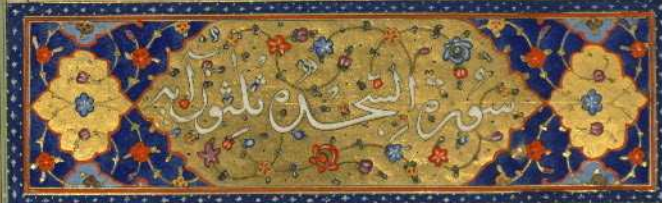 سورة السجدة ثلثون آية